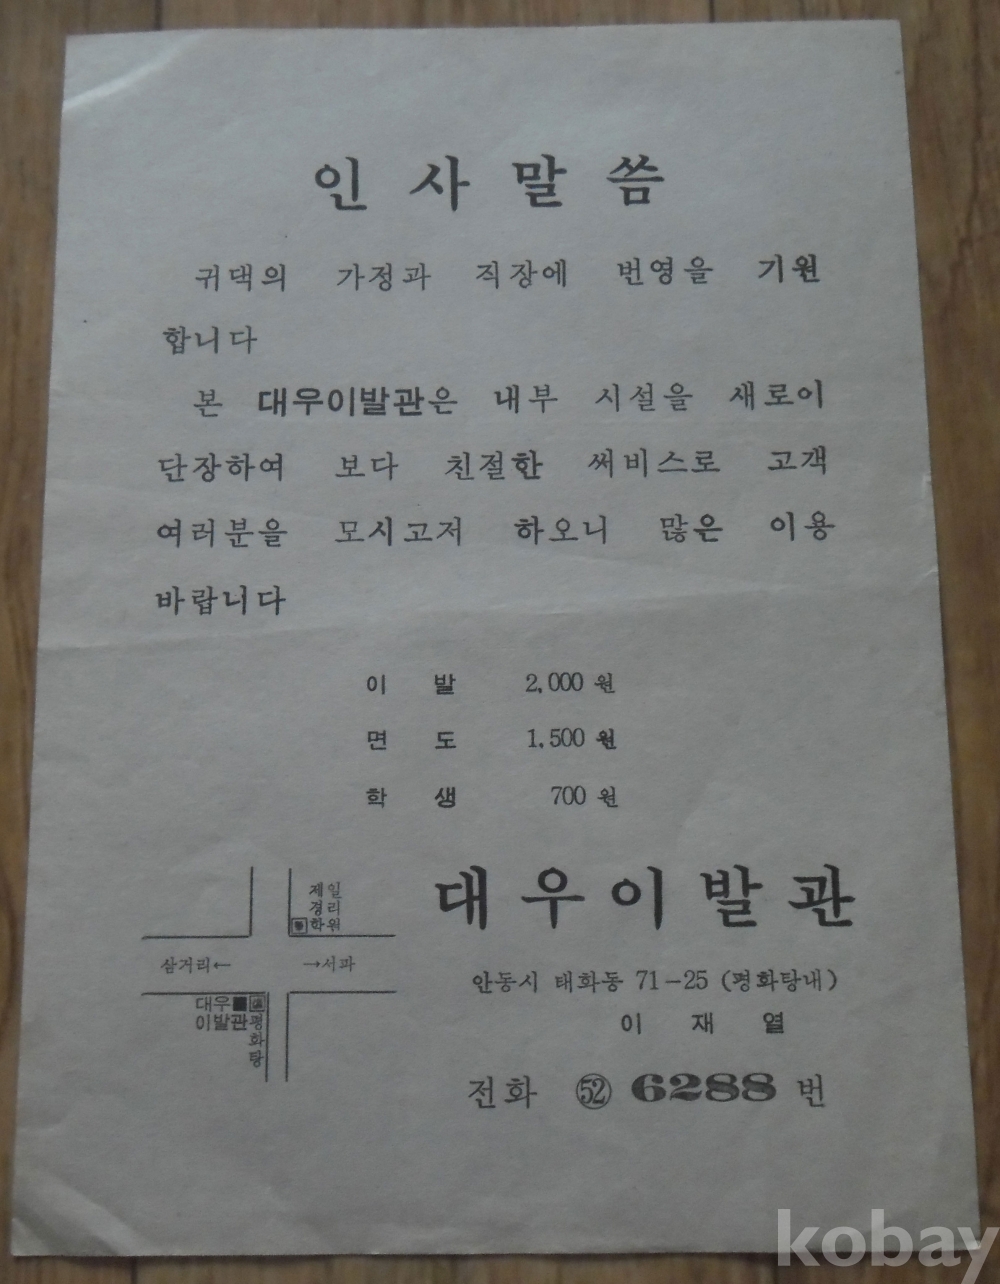 인사말씀
귀댁의 가정과 직장에 번영을 기원
합니다
본 대우이발관은 내부 시설을 새로이
단장하여 보다 친절한 써비스로 고객
여러분을 모시고저 하오니 많은 이용
바랍니다
이 발 2,000 원
면 도 1,500 원
학 생 700 원
제일
경리
학원
삼거리← →서파
대우
이발관
평화탕
대우이발관
안동시 태화동 71-25 (평화탕내)
이 재 열
전화 52 6288 번
kobay